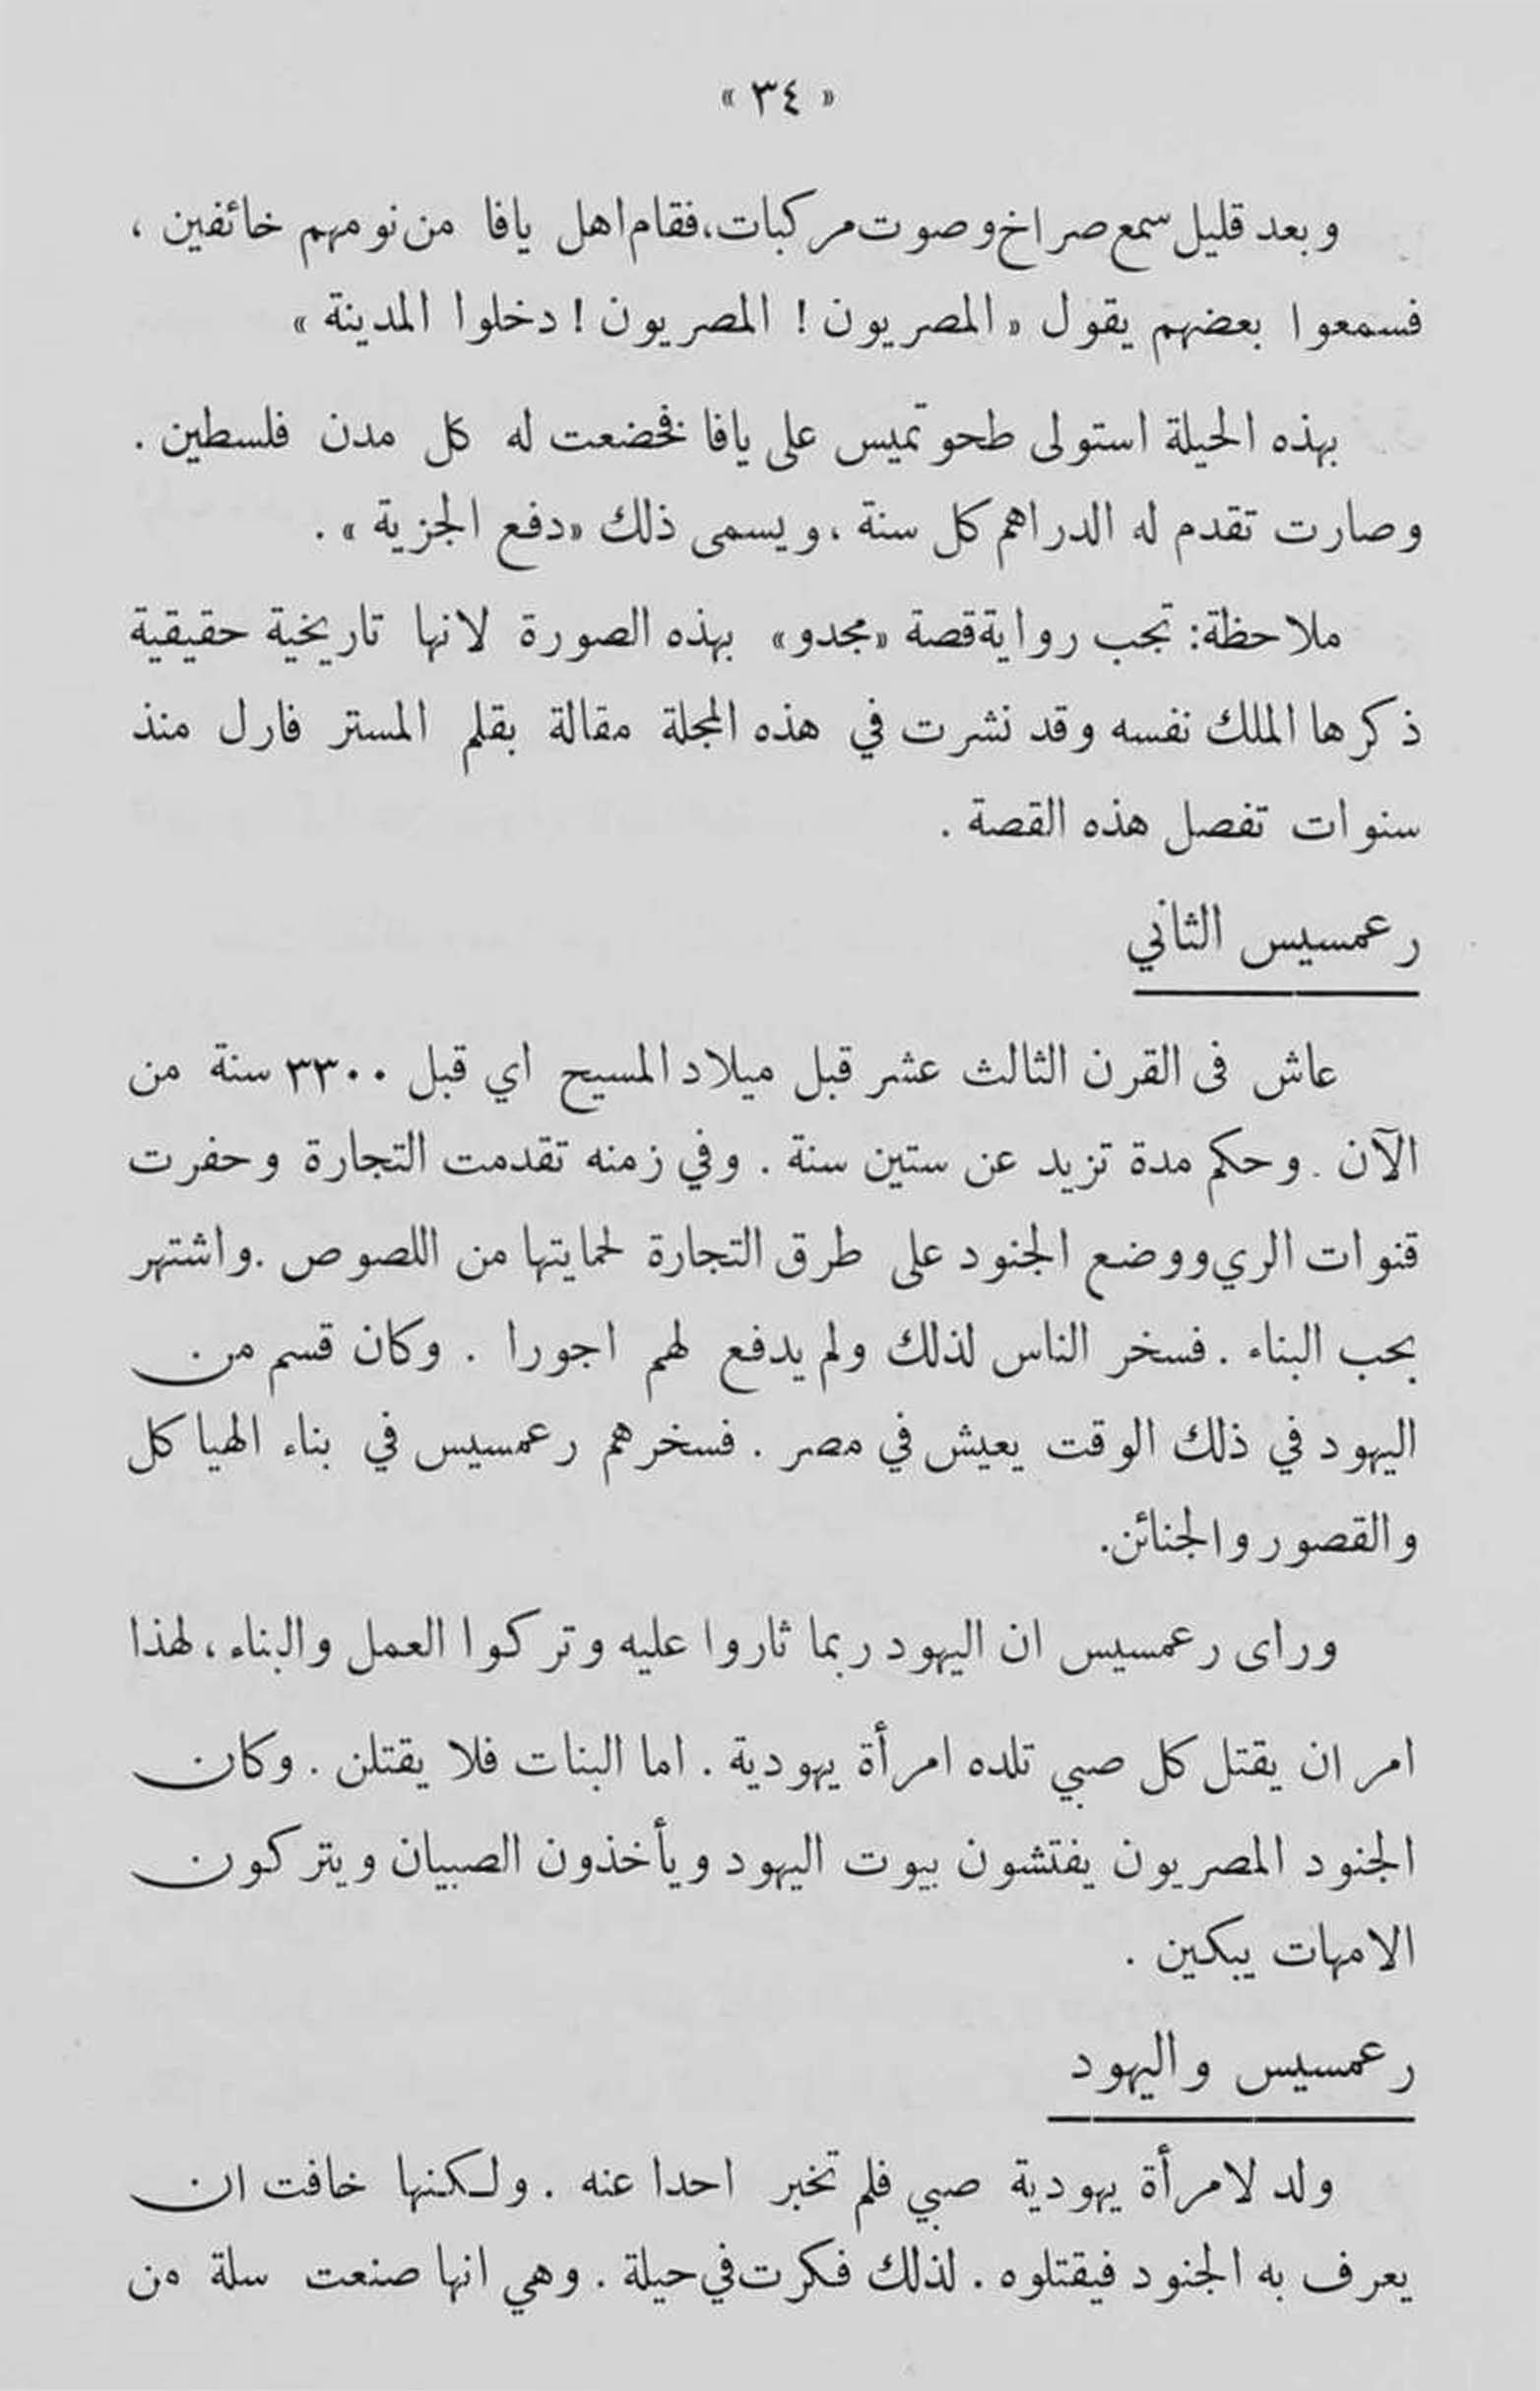 « ٣٤ »
وبعد قليل سمع صراخ وصوت مركبات، فقام اهل يافا من نومهم خائفين ،
فسمعوا بعضهم يقول « المصريون ! المصريون ! دخلوا المدينة »
بهذه الحيلة استولى طحوتميس على يافا فخضعت له كل مدن فلسطين .
وصارت تقدم له الدراهم كل سنة ، ويسمى ذلك «دفع الجزية » .
ملاحظة: تجب رواية قصة «مجدو» بهذه الصورة لانها تاريخية حقيقية
ذكرها الملك نفسه وقد نشرت في هذه المجلة مقالة بقلم المستر فارل منذ
سنوات تفصل هذه القصة .
رعمسيس الثاني
عاش فى القرن الثالث عشر قبل ميلاد المسيح اي قبل ٣٣٠٠ سنة من
الآن . وحكم مدة تزيد عن ستين سنة . وفي زمنه تقدمت التجارة وحفرت
قنوات الري ووضع الجنود على طرق التجارة لحمايتها من اللصوص . واشتهر
بحب البناء . فسخر الناس لذلك ولم يدفع لهم اجورا . وكان قسم من
اليهود في ذلك الوقت يعيش في مصر . فسخرهم رعمسيس في بناء الهياكل
والقصور والجنائن.
وراى رعمسيس ان اليهود ربما ثاروا عليه وتركوا العمل والبناء ، لهذا
امر ان يقتل كل صبي تلده امرأة يهودية . اما البنات فلا يقتلن . وكان
الجنود المصريون يفتشون بيوت اليهود ويأخذون الصبيان ويتركون
الامهات يبكين .
رعمسيس واليهود
ولد لامرأة يهودية صبي فلم تخبر احدا عنه . ولكنها خافت ان
يعرف به الجنود فيقتلوه . لذلك فكرت في حيلة . وهي انها صنعت سلة من